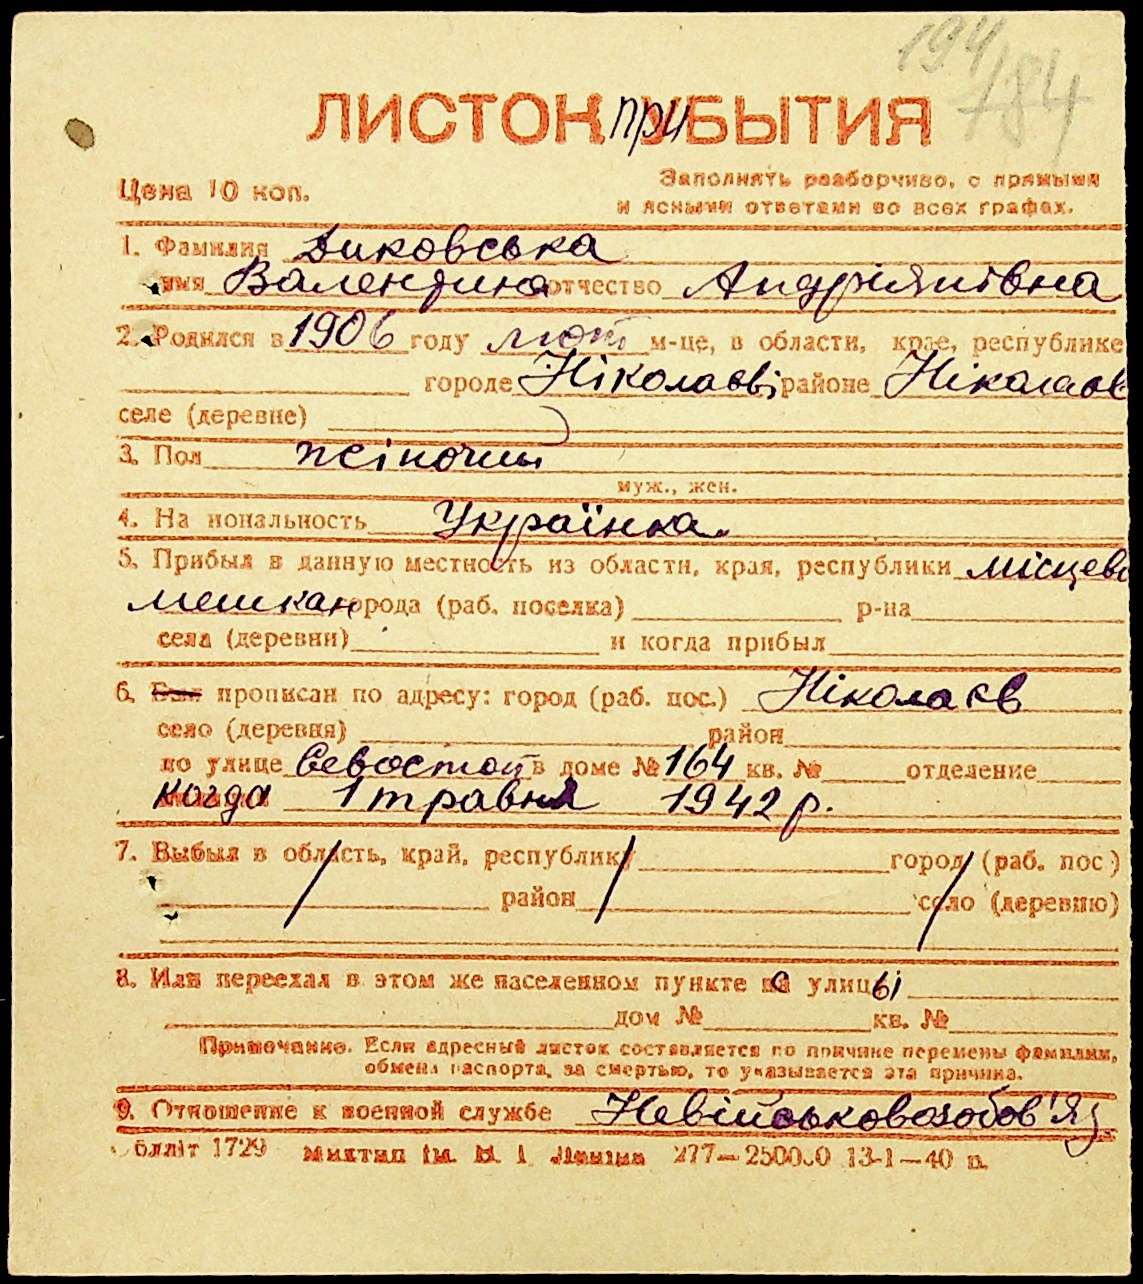 194/184
ЛИСТОК ПРИБЫТИЯ
Цена 10 коп.
Заполнять разборчиво, с прямыми
и ясными ответами во всех графах.
1. Фамилия Диковська
имя Валентина отчество Андріянівна
2. Родился в 1906 году лют м-це, в области, крае, республике
городе Ніколаєві районе Ніколаєв
селе (деревне)
3. Пол жіночий
муж., жен.
4. На иональность Українка
5. Прибыл в данную местность из области, края, республики місцев
мешкан города (раб. поселка) р-на
села (деревни) и когда прибыл
6. Был прописан по адресу: город (раб. пос.) Ніколаєв
село (деревня) район
по улице Севостоп в доме № 164 кв. № отделение
когда 1 травня 1942 р.
7. Выбыл в область, край, республику город (раб. пос)
район село (деревню)
8. Или переехал в этом же населенном пункте с улицы
дом № кв. №
Примечание. Если адресный листок составляется по причине перемены фамилии,
обмена паспорта, за смертью, то указывается эта причина.
9. Отношение к военной службе Невійськовозобов'яз
Обліт 1729 Миктип ім. В. І. Леніна 277—25000 13-1—40 п.